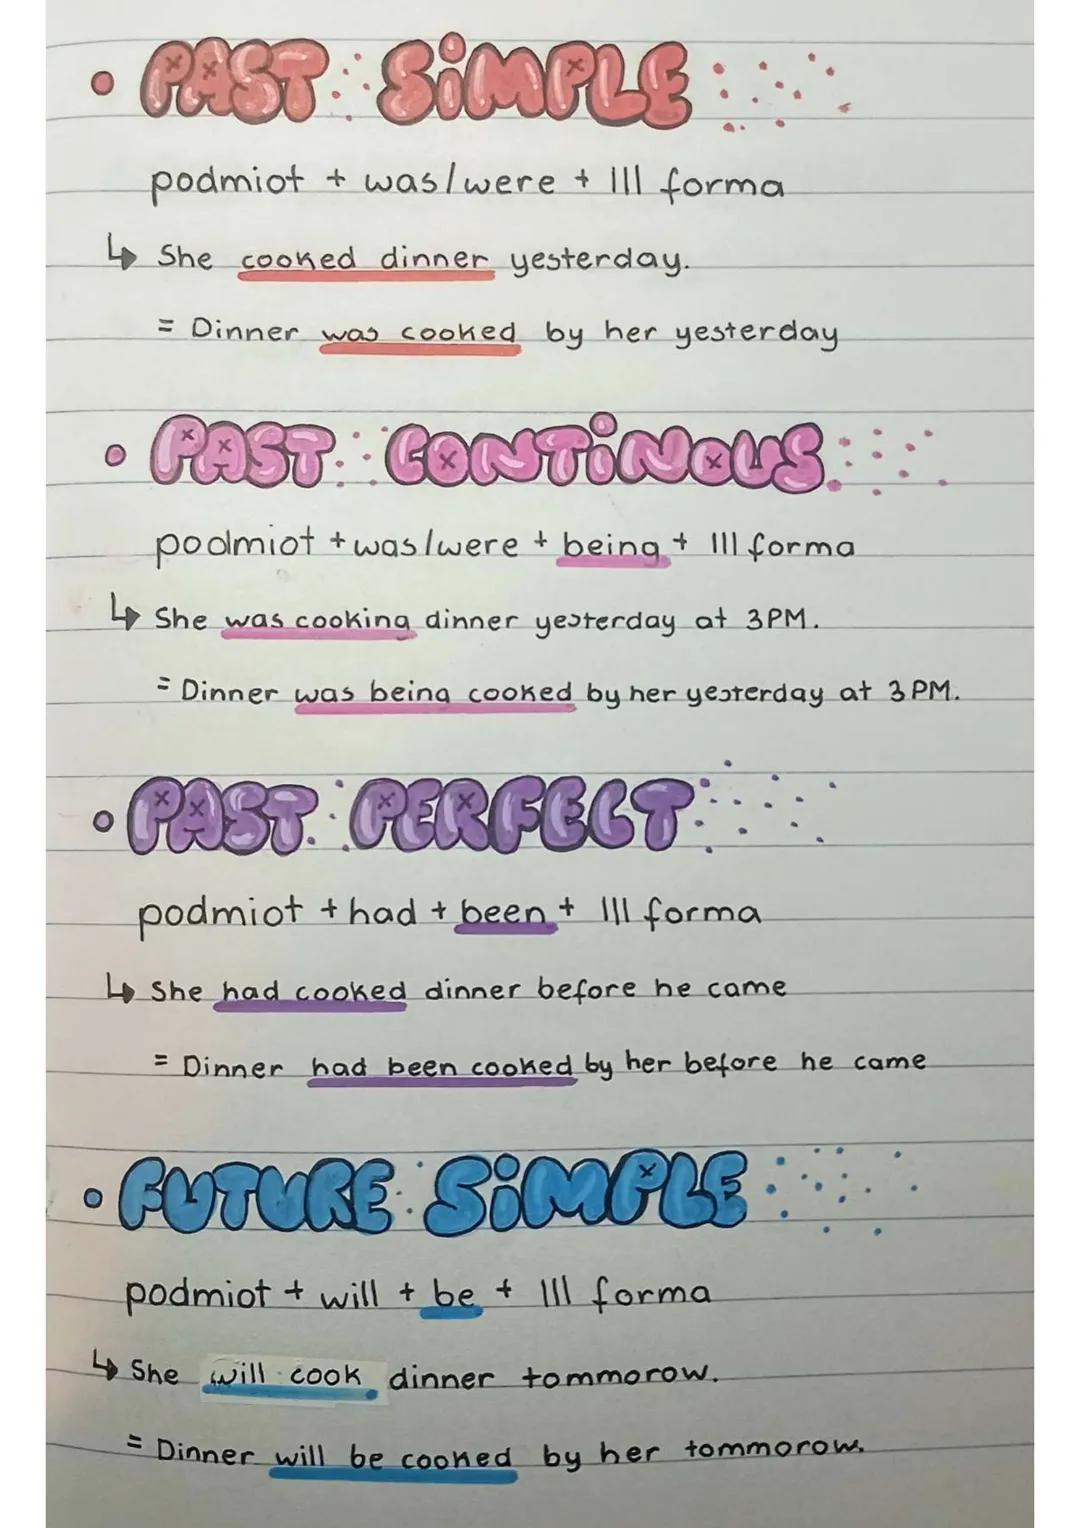 • PAST SiMPLE
podmiot + was/were + III forma
↳ She cooked dinner yesterday.
= Dinner was cooked by her yesterday
• PAST CONTiNOUS
podmiot + was/were + being + III forma
↳ She was cooking dinner yesterday at 3PM.
= Dinner was being cooked by her yesterday at 3PM.
• PAST PERFECT
podmiot + had + been + III forma
↳ She had cooked dinner before he came
= Dinner had been cooked by her before he came
• FUTURE SiMPLE
podmiot + will + be + III forma
↳ She will cook dinner tommorow.
= Dinner will be cooked by her tommorow.